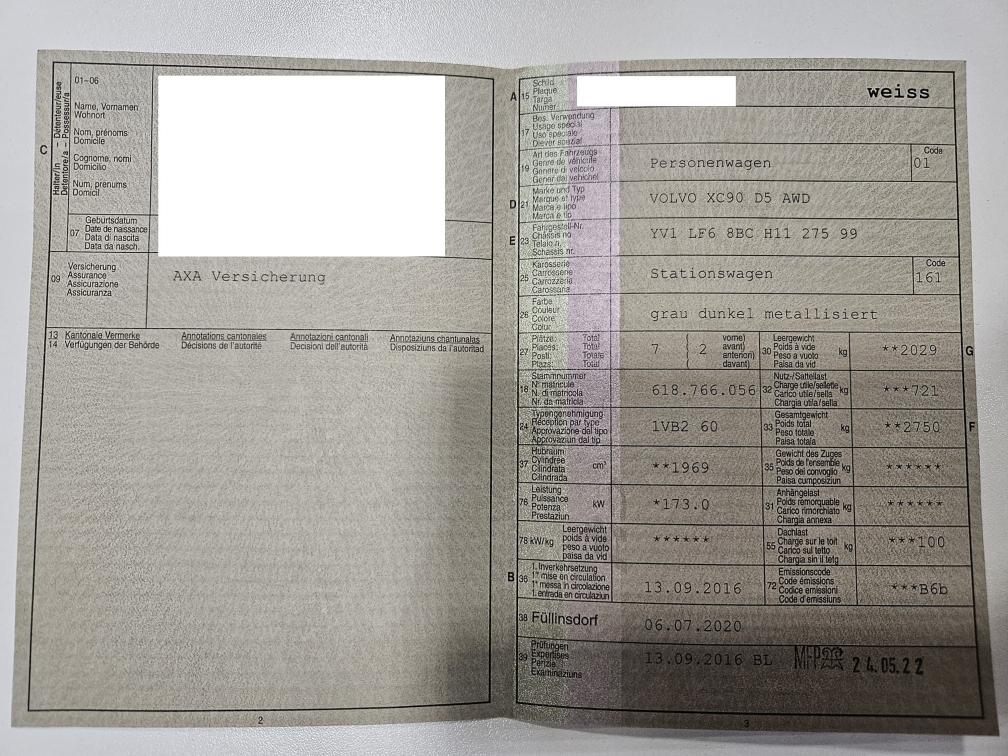 C
Halter/in – Détenteur/euse
Detentore/a – Possessur/a
01–06
Name, Vornamen
Wohnort
Nom, prénoms
Domicile
Cognome, nomi
Domicilio
Num, prenums
Domicil
07
Geburtsdatum
Date de naissance
Data di nascita
Data da nasch.
09
Versicherung
Assurance
Assicurazione
Assicuranza
AXA Versicherung
13 Kantonale Vermerke Annotations cantonales Annotazioni cantonali Annotaziuns chantunalas
14 Verfügungen der Behörde Décisions de l'autorité Decisioni dell'autorità Dispoziziuns da l'autoritad
2
A 15
Schild
Plaque
Targa
Numer
weiss
17
Bes. Verwendung
Usage spécial
Uso speciale
Diever spezial
19
Art des Fahrzeugs
Genre de véhicule
Genere di veicolo
Gener dal vehichel
Personenwagen
Code
01
D 21
Marke und Typ
Marque et type
Marca e tipo
Marca e tip
VOLVO XC90 D5 AWD
E 23
Fahrgestell-Nr.
Châssis no
Telaio n.
Schassis nr.
YV1 LF6 8BC H11 275 99
25
Karosserie
Carrosserie
Carrozzeria
Carossaria
Stationswagen
Code
161
26
Farbe
Couleur
Colore
Colur
grau dunkel metallisiert
27
Plätze: Total
Places: Total
Posti: Totale
Plazs: Total
7 { 2 vorne)
avant)
anteriori)
davant)
30
Leergewicht
Poids à vide
Peso a vuoto
Paisa da vid
kg
**2029
G
18
Stammnummer
N° matricule
N. di matricola
Nr. da matricla
618.766.056
32
Nutz-/Sattellast
Charge utile/sellette
Carico utile/sella
Chargia utila/sella
kg
***721
24
Typengenehmigung
Réception par type
Approvazione del tipo
Approvaziun dal tip
1VB2 60
33
Gesamtgewicht
Poids total
Peso totale
Paisa totala
kg
**2750
F
37
Hubraum
Cylindrée
Cilindrata
Cilindrada
cm³
**1969
35
Gewicht des Zuges
Poids de l'ensemble
Peso del convoglio
Paisa cumposiziun
kg
******
76
Leistung
Puissance
Potenza
Prestaziun
kW
*173.0
31
Anhängelast
Poids remorquable
Carico rimorchiato
Chargia annexa
kg
******
78 kW/kg
Leergewicht
poids à vide
peso a vuoto
paisa da vid
******
55
Dachlast
Charge sur le toit
Carico sul tetto
Chargia sin il tetg
kg
***100
B 36
1. Inverkehrsetzung
1re mise en circulation
1a messa in circolazione
1. entrada en circulaziun
13.09.2016
72
Emissionscode
Code émissions
Codice emissioni
Code d'emissiuns
***B6b
38 Füllinsdorf
06.07.2020
39
Prüfungen
Expertises
Perizie
Examinaziuns
13.09.2016 BL MFP 24.05.22
3